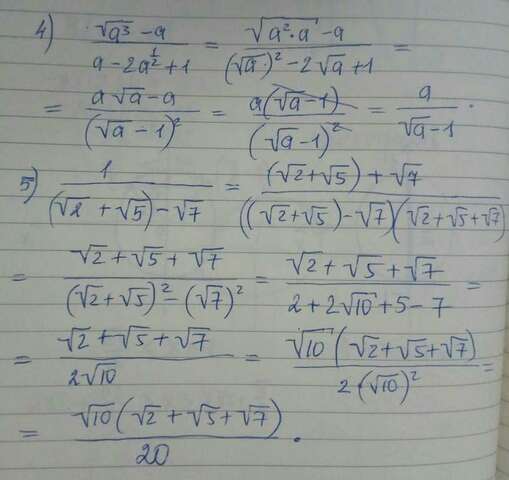 4) (√a³ - a)/(a - 2a^(1/2) + 1) = (√(a²·a) - a)/((√a)² - 2√a + 1) =
= (a√a - a)/(√a - 1)² = a(√a - 1)/(√a - 1)² = a/(√a - 1).
5) 1/((√2 + √5) - √7) = ((√2 + √5) + √7)/(((√2 + √5) - √7)(√2 + √5 + √7))
= (√2 + √5 + √7)/((√2 + √5)² - (√7)²) = (√2 + √5 + √7)/(2 + 2√10 + 5 - 7) =
= (√2 + √5 + √7)/(2√10) = √10(√2 + √5 + √7)/(2·(√10)²) =
= √10(√2 + √5 + √7)/20.